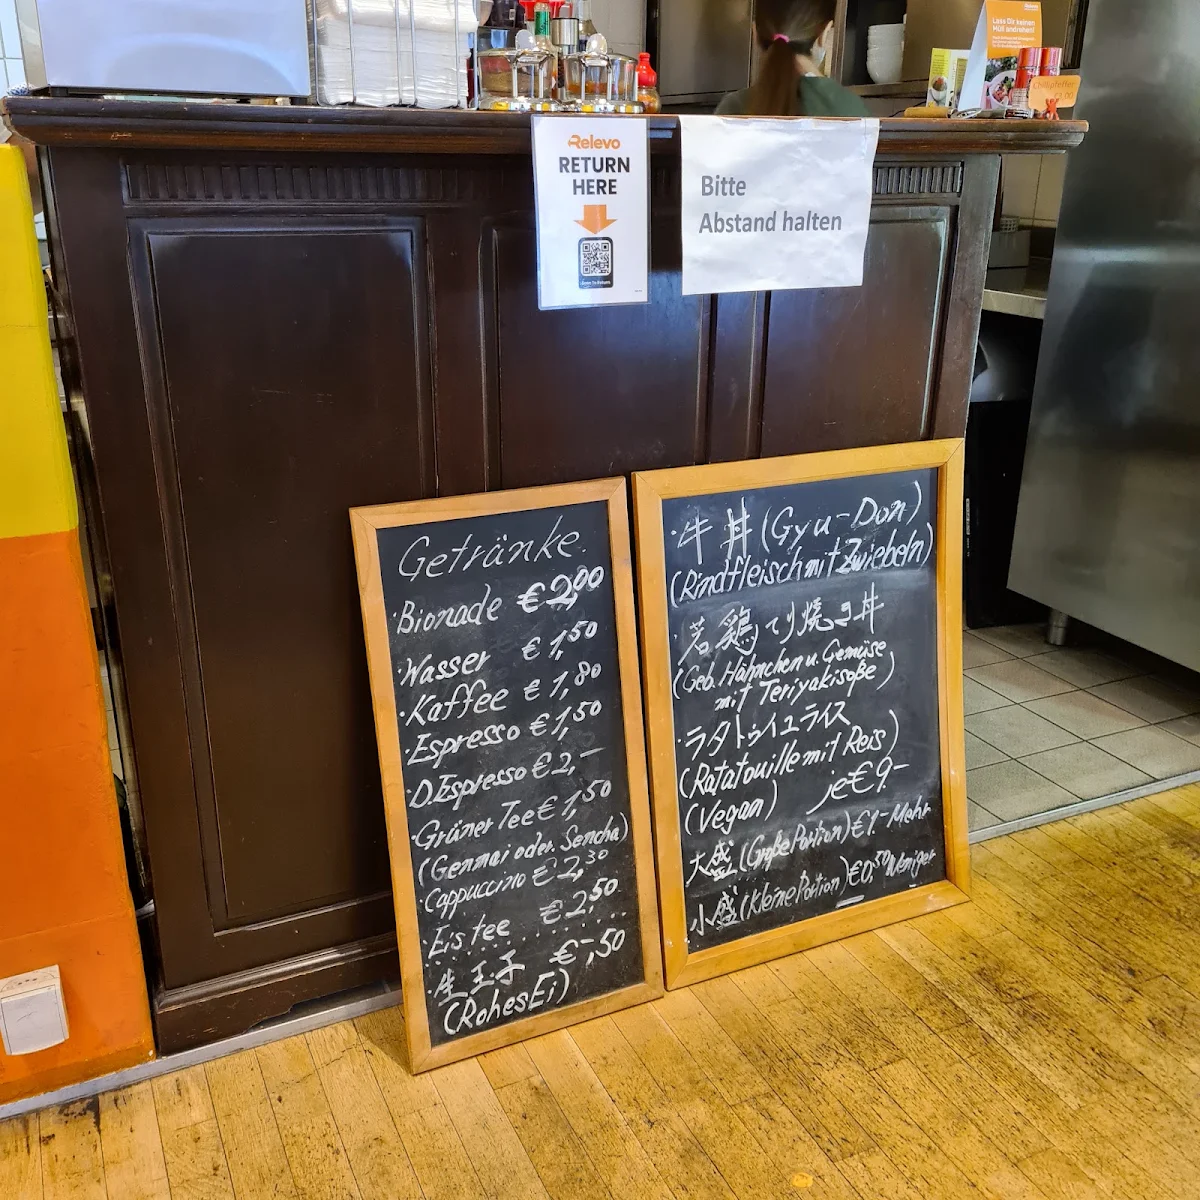 Lass Dir keinen
Müll andrehen!
Relevo
RETURN
HERE
Bitte
Abstand halten
Getränke
·Bionade €2,00
·Wasser €1,50
·Kaffee €1,80
·Espresso €1,50
·D.Espresso €2,–
·Grüner Tee €1,50
(Genmai oder Sencha)
·Cappuccino €2,30
·Eistee €2,50
·生玉子 €–,50
(Rohes Ei)
·牛丼 (Gyu-Don)
(Rindfleisch mit Zwiebeln)
·若鶏てり焼き丼
(Geb. Hähnchen u. Gemüse
mit Teriyakisoße)
·ラタトゥイユライス
(Ratatouille mit Reis)
(Vegan) je €9.–
大盛 (Große Portion) €1.– Mehr
小盛 (kleine Portion) €0,50 Weniger